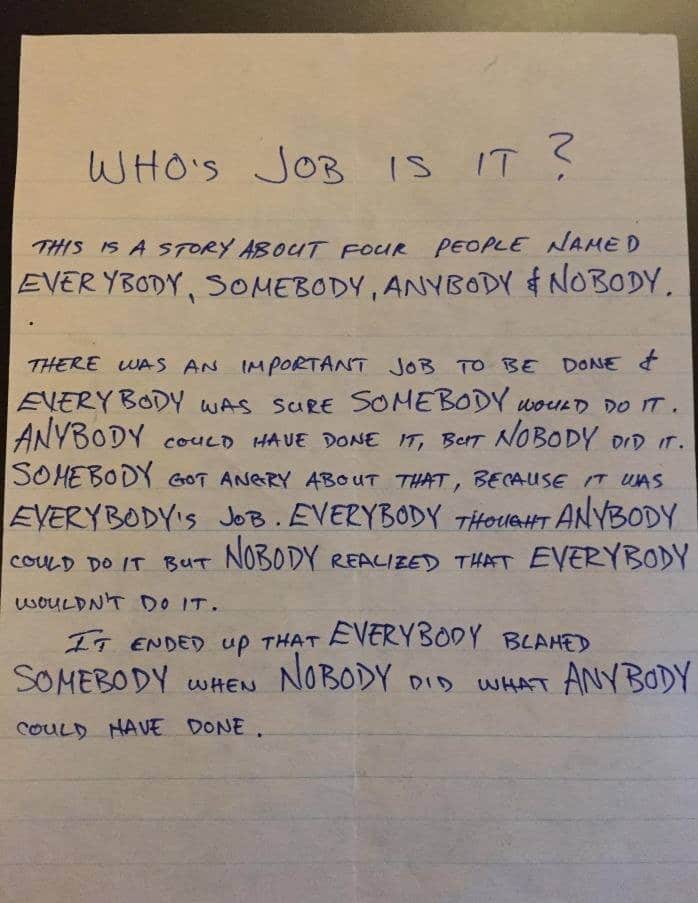 WHO'S JOB IS IT?
THIS IS A STORY ABOUT FOUR PEOPLE NAMED
EVERYBODY, SOMEBODY, ANYBODY & NOBODY.
THERE WAS AN IMPORTANT JOB TO BE DONE &
EVERYBODY WAS SURE SOMEBODY WOULD DO IT.
ANYBODY COULD HAVE DONE IT, BUT NOBODY DID IT.
SOMEBODY GOT ANGRY ABOUT THAT, BECAUSE IT WAS
EVERYBODY'S JOB. EVERYBODY THOUGHT ANYBODY
COULD DO IT BUT NOBODY REALIZED THAT EVERYBODY
WOULDN'T DO IT.
IT ENDED UP THAT EVERYBODY BLAMED
SOMEBODY WHEN NOBODY DID WHAT ANYBODY
COULD HAVE DONE.